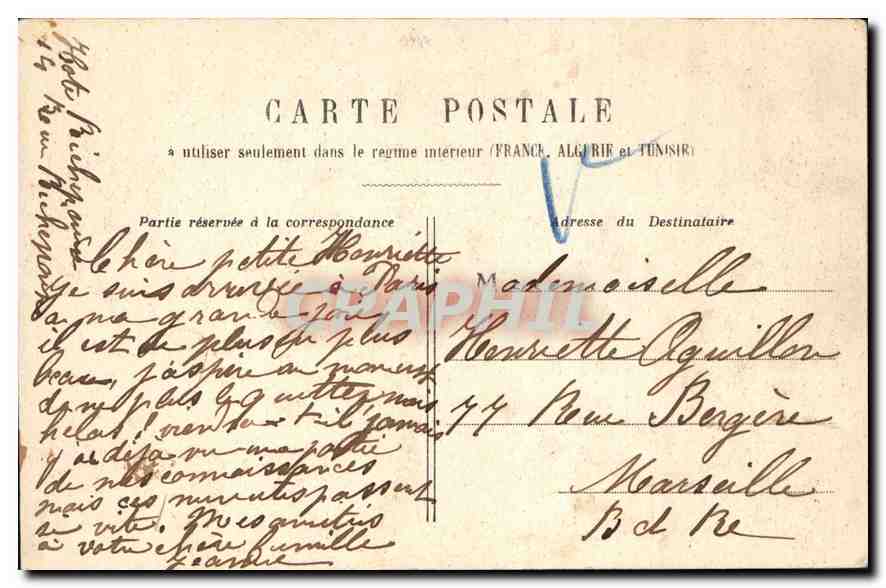 CARTE POSTALE
à utiliser seulement dans le régime intérieur (FRANCE, ALGÉRIE et TUNISIE)
Partie réservée à la correspondance
Adresse du Destinataire
Chère petite Henriette
je suis arrivée à Paris
a ma grande joie,
il est de plus en plus
beau, j'aspire au moment
de ne plus le quitter, mais
helas! viendra-t-il jamais
y ai déjà vu une partie
de mes connaissances
mais ces minutes passent
si vite. Mes amitiés
à votre chère famille
Jeanne
Hote Richepanse
14 Rue Richepanse
Mademoiselle
Henriette Aguillon
77 Rue Bergère
Marseille
B d Re
CPAPHIL